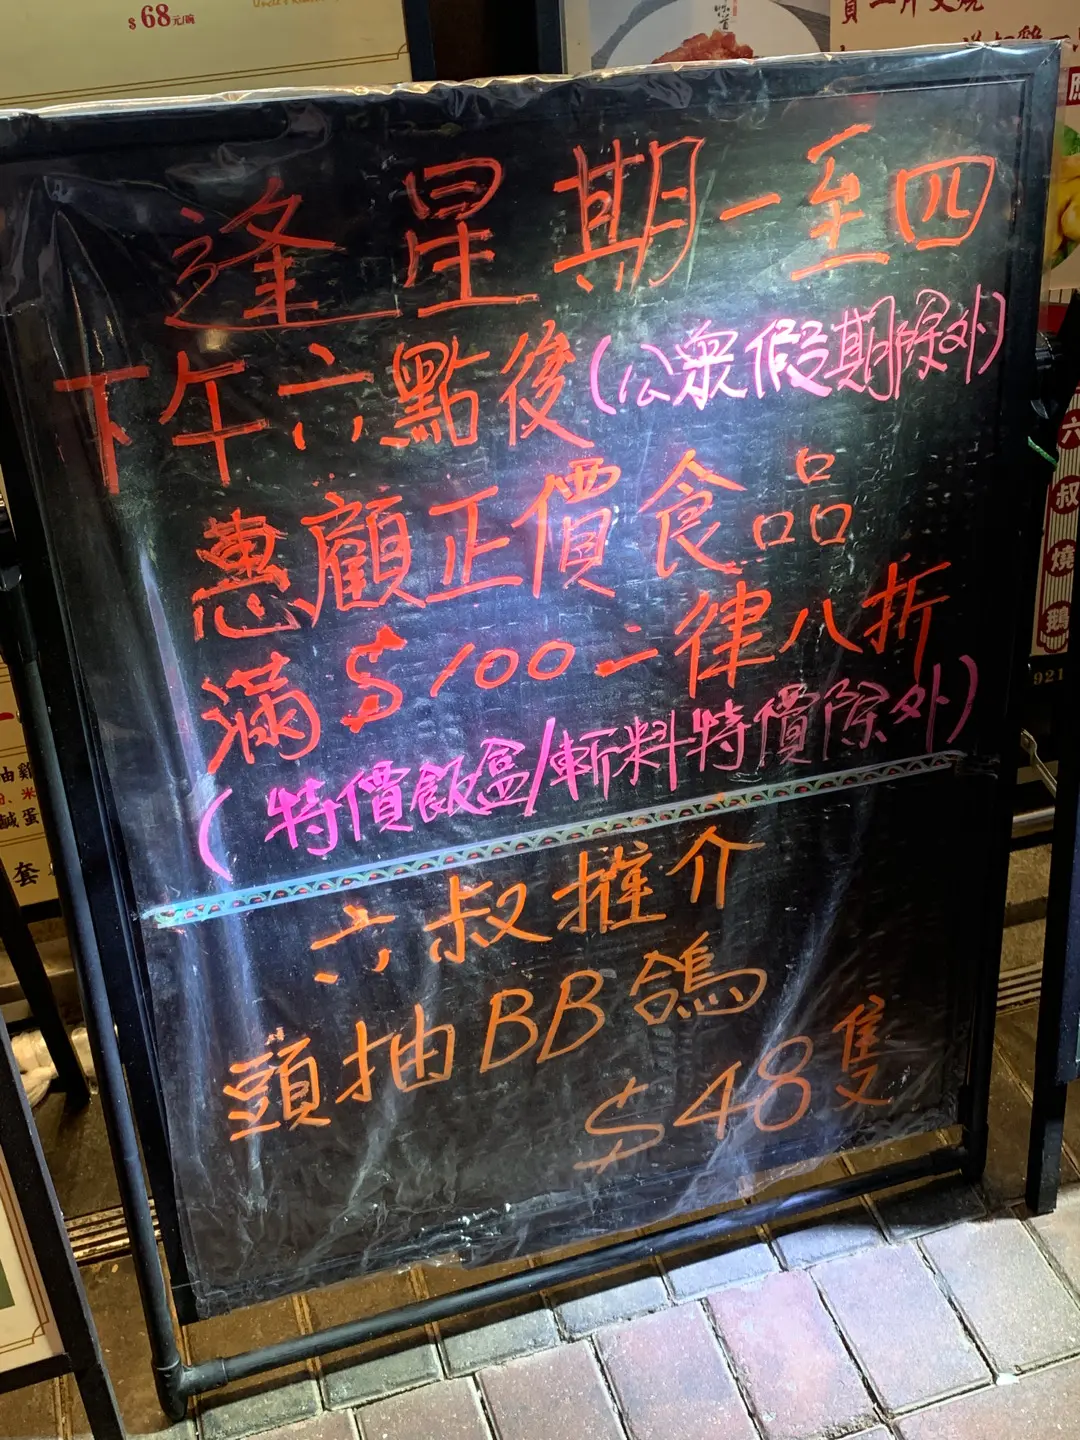 $68元/碗
逢星期一至四
下午六點後(公眾假期除外)
惠顧正價食品
滿$100一律八折
(特價飯盒/斬料特價除外)
六叔推介
頭抽BB鴿
$48隻
六叔燒鵝
921
套